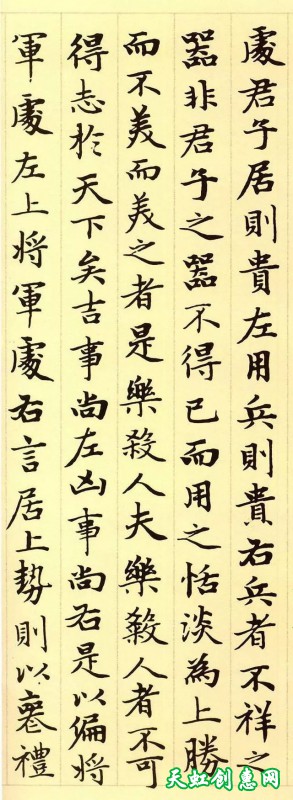 處君子居則貴左用兵則貴右兵者不祥之
噐非君子之噐不得已而用之恬淡為上勝
而不美而美之者是樂殺人夫樂殺人者不可
得志扵天下矣吉事尚左凶事尚右是以偏将
軍處左上将軍處右言居上勢則以喪禮
天虹创意网